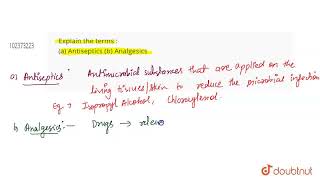 102373223
Explain the terms :
(a) Antiseptics (b) Analgesics
a) Antiseptics : Antimicrobial substances that are applied on the
living tissues/skin to reduce the microbial infection
Eg. → Isopropyl Alcohol, Chloroxylenol.
b) Analgesics:— Drugs → releive
doubtnut